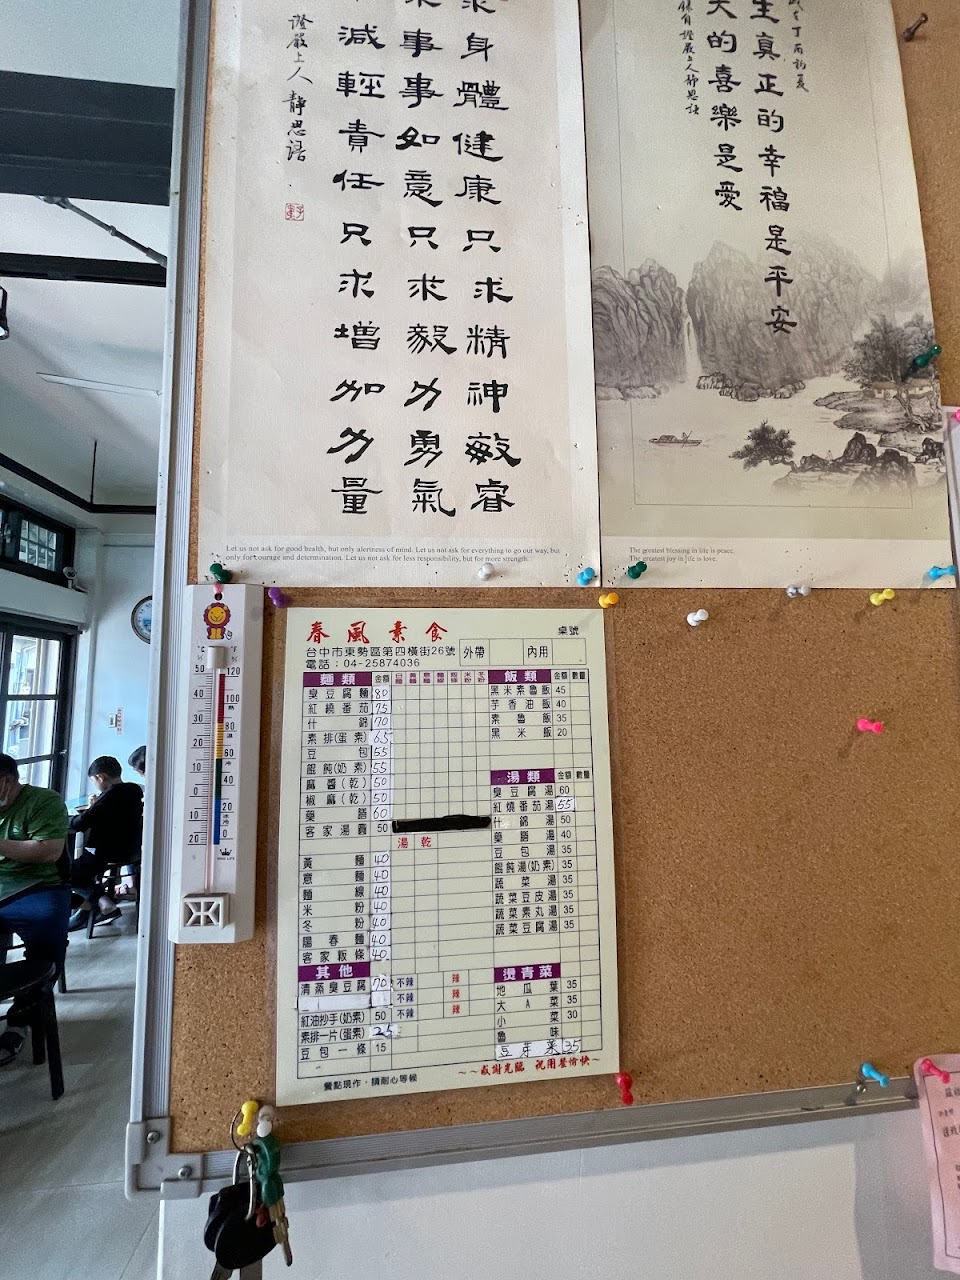 求身體健康只求精神敏睿
求事事如意只求毅力勇氣
求減輕責任只求增加力量
證嚴上人靜思語
Let us not ask for good health, but only alertness of mind. Let us not ask for everything to go our way, but
only for courage and determination. Let us not ask for less responsibility, but for more strength.
生真正的幸福是平安
大的喜樂是愛
錄自證嚴上人靜思語
The greatest blessing in life is peace.
The greatest joy in life is love.
春風素食
桌號
台中市東勢區第四橫街26號
電話：04-25874036
外帶 內用
麵類 金額
臭豆腐麵 80
紅燒番茄 75
什錦 70
素排(蛋素) 65
豆包 55
餛飩(奶素) 55
麻醬(乾) 50
椒麻(乾) 50
藥膳 60
客家湯圓 50
湯 乾
黃麵 40
意麵 40
麵線 40
米粉 40
冬粉 40
陽春麵 40
客家粄條 40
其他
清蒸臭豆腐 70 不辣 辣
不辣 辣
紅油抄手(奶素) 50 不辣 辣
素排一片(蛋素) 25
豆包一條 15
飯類 金額 數量
黑米素魯飯 45
芋香油飯 40
素魯飯 35
黑米飯 20
湯類 金額 數量
臭豆腐湯 60
紅燒番茄湯 55
什錦湯 50
藥膳湯 40
豆包湯 35
餛飩湯(奶素) 35
蔬菜湯 35
蔬菜豆皮湯 35
蔬菜素丸湯 35
蔬菜豆腐湯 35
燙青菜
地瓜葉 35
大A菜 35
小菜 30
魯味
豆芽菜 35
~~感謝光臨 祝用餐愉快~
餐點現作，請耐心等候